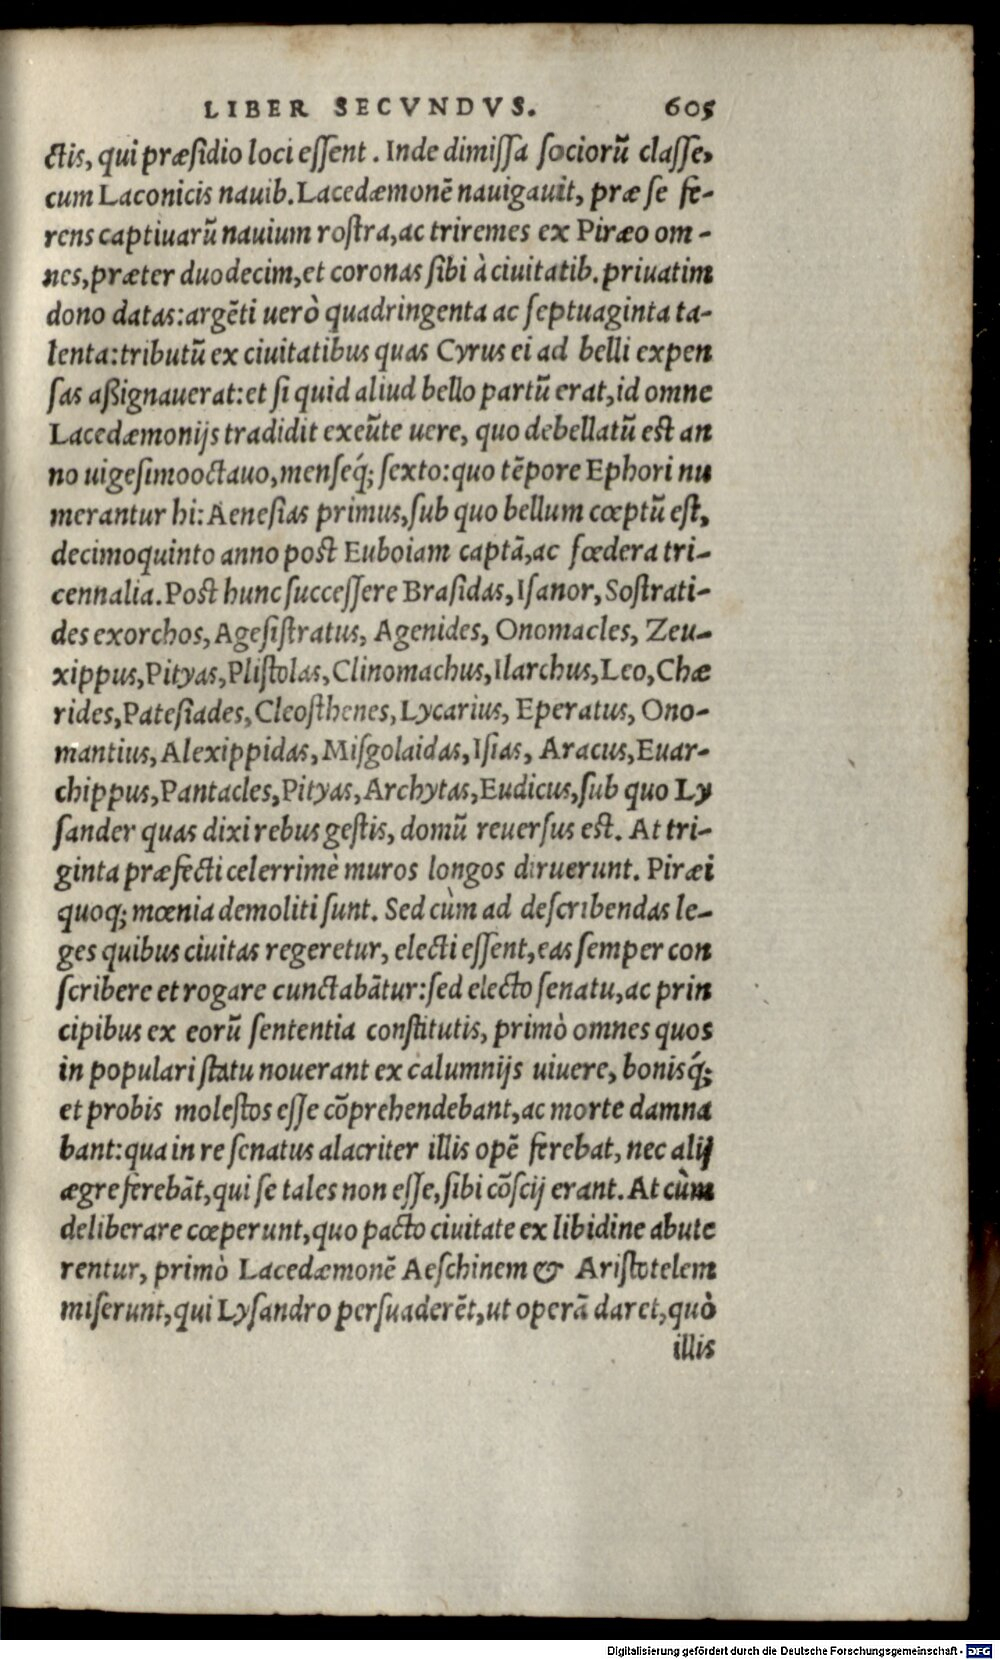 LIBER SECVNDVS. 605
ctis, qui præsidio loci essent. Inde dimissa sociorũ classe,
cum Laconicis nauib. Lacedæmonẽ nauigauit, præ se fe-
rens captiuarũ nauium rostra, ac triremes ex Piræo om-
nes, præter duodecim, et coronas sibi à ciuitatib. priuatim
dono datas: argẽti uerò quadringenta ac septuaginta ta-
lenta: tributũ ex ciuitatibus quas Cyrus ei ad belli expen
sas aßignauerat: et si quid aliud bello partũ erat, id omne
Lacedæmonijs tradidit exeũte uere, quo debellatũ est an
no uigesimooctauo, menseq́; sexto: quo tẽpore Ephori nu
merantur hi: Aenesias primus, sub quo bellum cœptũ est,
decimoquinto anno post Euboiam captã, ac fœdera tri-
cennalia. Post hunc successere Brasidas, Isanor, Sostrati-
des exorchos, Agesistratus, Agenides, Onomacles, Zeu-
xippus, Pityas, Plistolas, Clinomachus, Ilarchus, Leo, Chæ
rides, Patesiades, Cleosthenes, Lycarius, Eperatus, Ono-
mantius, Alexippidas, Misgolaidas, Isias, Aracus, Euar-
chippus, Pantacles, Pityas, Archytas, Eudicus, sub quo Ly
sander quas dixi rebus gestis, domũ reuersus est. At tri-
ginta præfecti celerrimè muros longos diruerunt. Piræi
quoq; mœnia demoliti sunt. Sed cùm ad describendas le-
ges quibus ciuitas regeretur, electi essent, eas semper con
scribere et rogare cunctabãtur: sed electo senatu, ac prin
cipibus ex eorũ sententia constitutis, primò omnes quos
in populari statu nouerant ex calumnijs uiuere, bonisq́;
et probis molestos esse cõprehendebant, ac morte damna
bant: qua in re senatus alacriter illis opẽ ferebat, nec alij
ægre ferebãt, qui se tales non esse, sibi cõscij erant. At cùm
deliberare cœperunt, quo pacto ciuitate ex libidine abute
rentur, primò Lacedæmonẽ Aeschinem & Aristotelem
miserunt, qui Lysandro persuaderẽt, ut operã daret, quò
illis
Digitalisierung gefördert durch die Deutsche Forschungsgemeinschaft - DFG